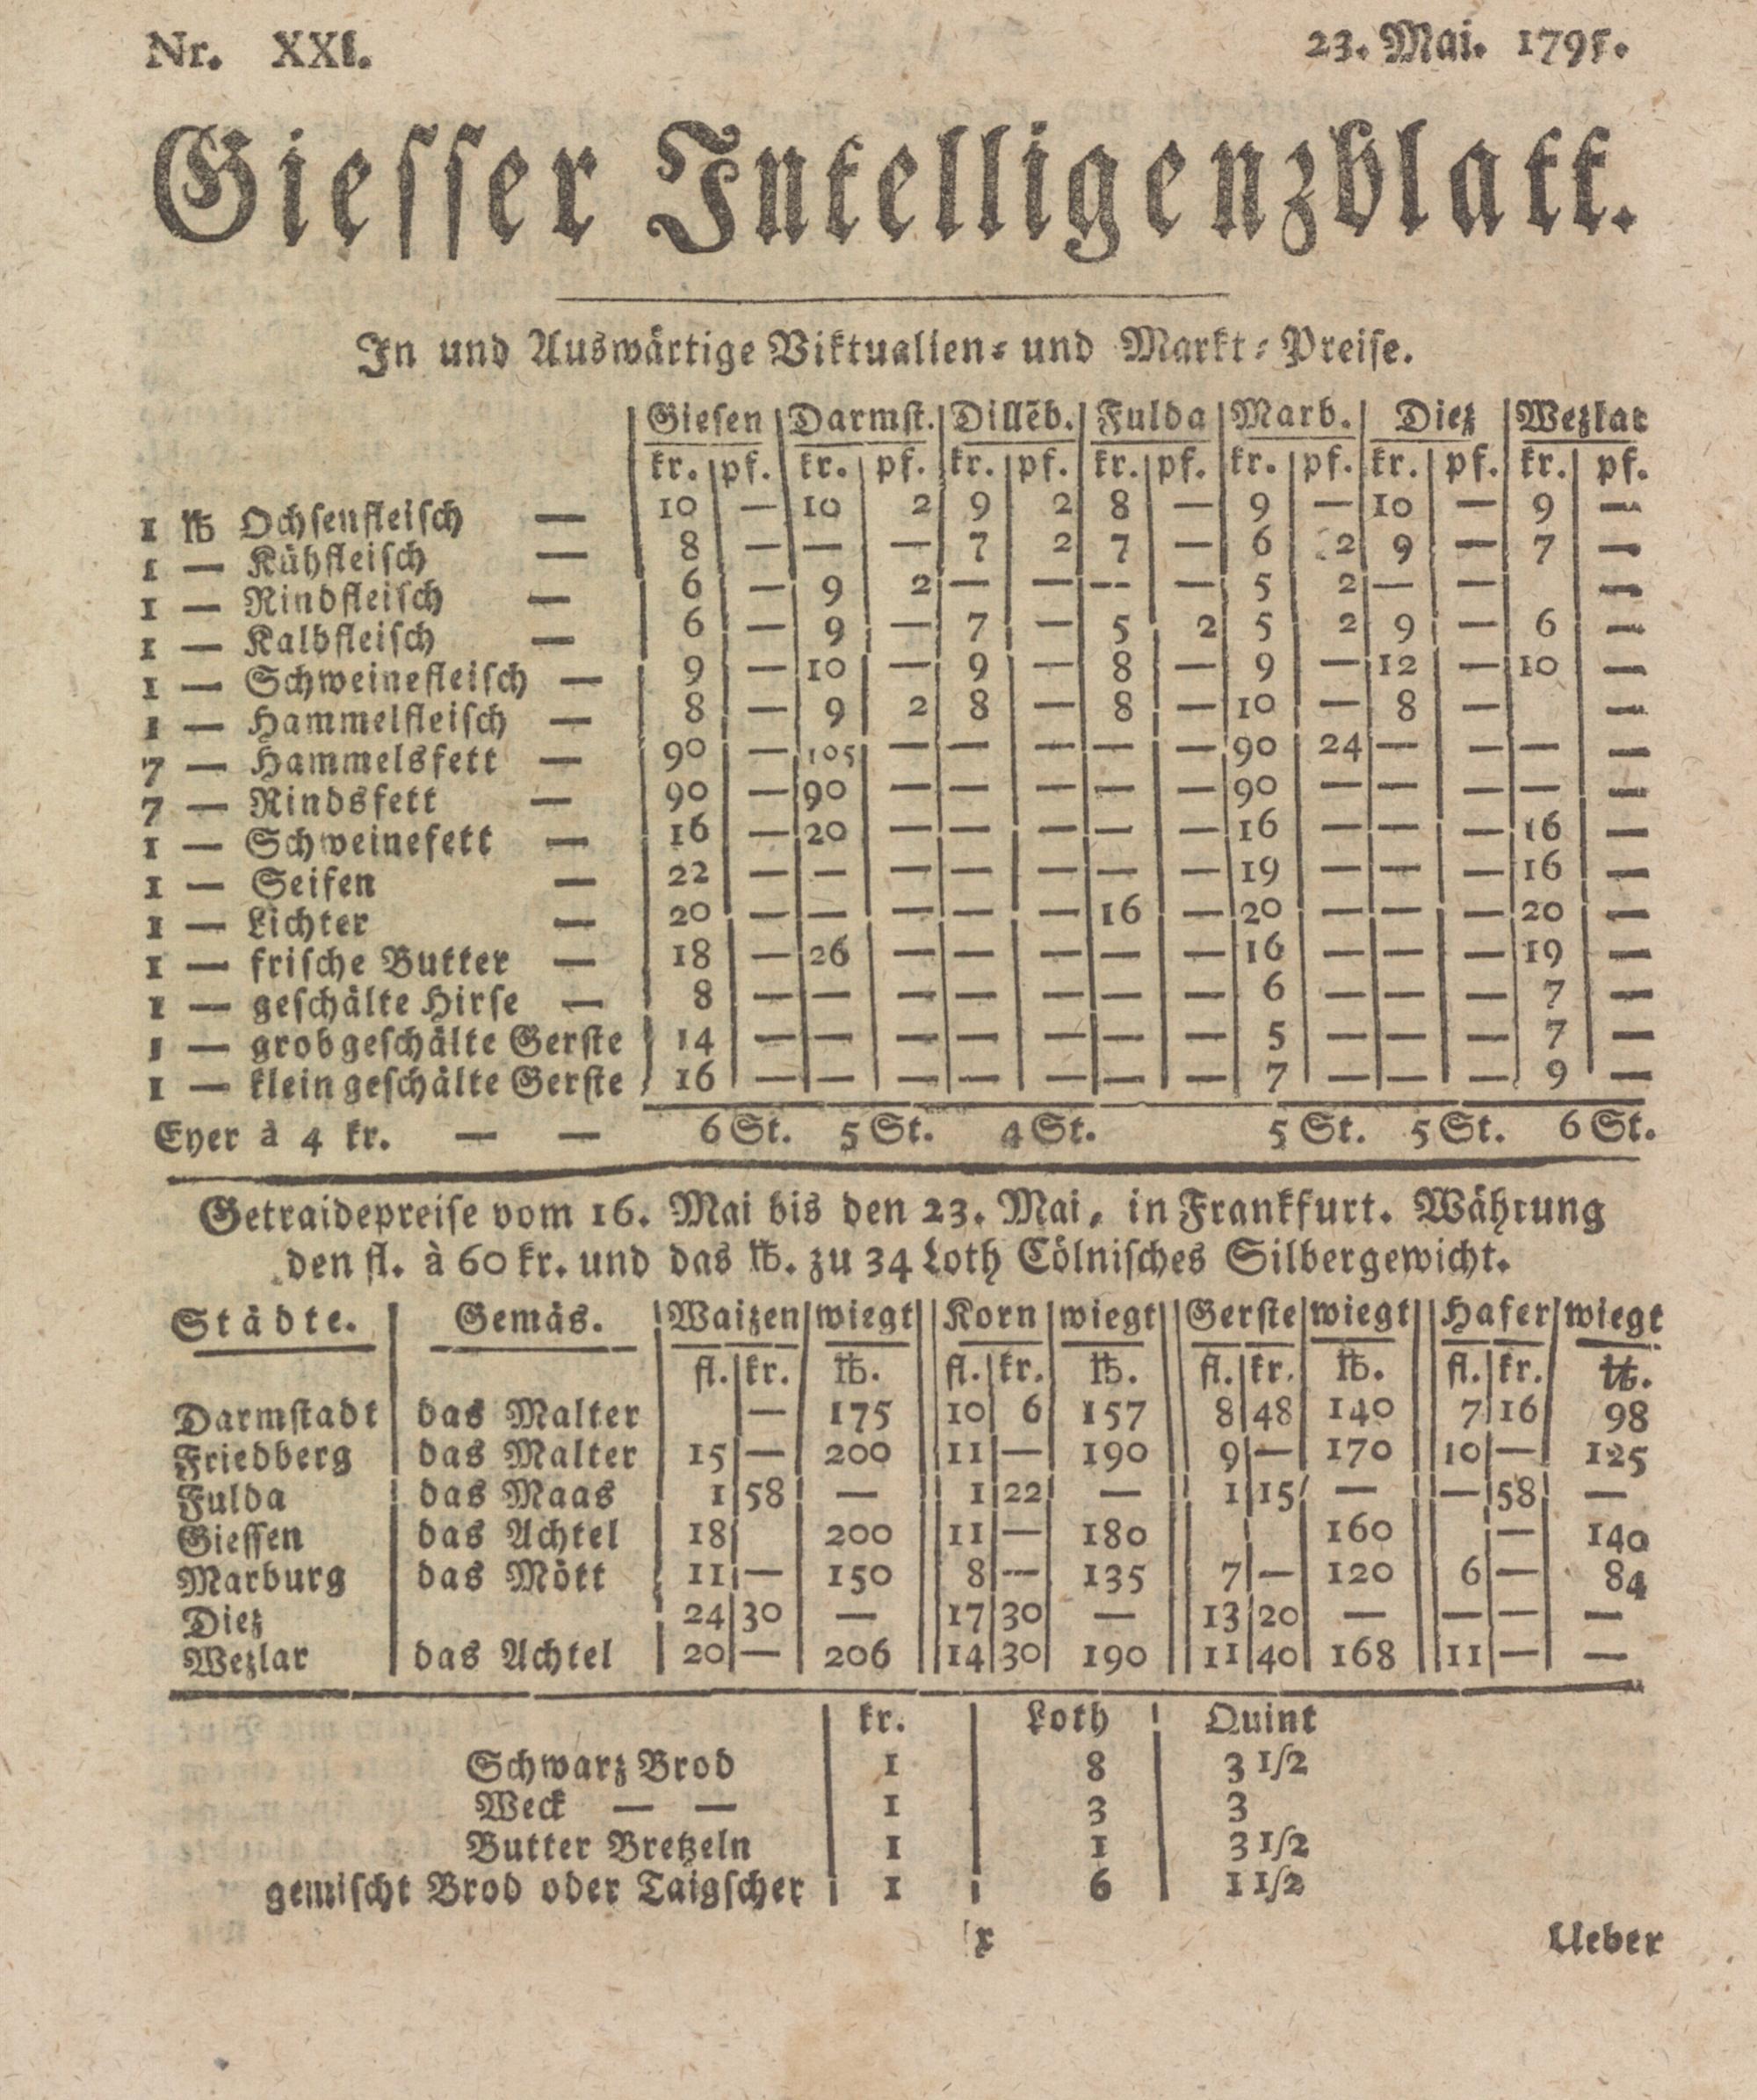 Nr. XXI. 23. Mai. 1795.
Giesser Intelligenzblatt.
In und Auswärtige Viktualien- und Markt-Preise.
Giesen | Darmst. | Dillēb. | Fulda | Marb. | Diez | Wezlar
kr. | pf. | kr. | pf. | kr. | pf. | kr. | pf. | kr. | pf. | kr. | pf. | kr. | pf.
1 ℔ Ochsenfleisch — 10 | — | 10 | 2 | 9 | 2 | 8 | — | 9 | — | 10 | — | 9 | —
1 — Kühfleisch — 8 | — | — | — | 7 | 2 | 7 | — | 6 | 2 | 9 | — | 7 | —
1 — Rindfleisch — 6 | — | 9 | 2 | — | — | — | — | 5 | 2 | — | — | | —
1 — Kalbfleisch — 6 | — | 9 | — | 7 | — | 5 | 2 | 5 | 2 | 9 | — | 6 | —
1 — Schweinefleisch — 9 | — | 10 | — | 9 | — | 8 | — | 9 | — | 12 | — | 10 | —
1 — Hammelfleisch — 8 | — | 9 | 2 | 8 | — | 8 | — | 10 | — | 8 | — | | —
7 — Hammelsfett — 90 | — | 105 | — | — | — | — | — | 90 | 24 | — | — | — | —
7 — Rindsfett — 90 | — | 90 | — | — | — | — | — | 90 | — | — | — | — | —
1 — Schweinefett — 16 | — | 20 | — | — | — | — | — | 16 | — | — | — | 16 | —
1 — Seifen — 22 | — | — | — | — | — | — | — | 19 | — | — | — | 16 | —
1 — Lichter — 20 | — | — | — | — | — | 16 | — | 20 | — | — | — | 20 | —
1 — frische Butter — 18 | — | 26 | — | — | — | — | — | 16 | — | — | — | 19 | —
1 — geschälte Hirse — 8 | — | — | — | — | — | — | — | 6 | — | — | — | 7 | —
1 — grob geschälte Gerste 14 | — | — | — | — | — | — | — | 5 | — | — | — | 7 | —
1 — klein geschälte Gerste 16 | — | — | — | — | — | — | — | 7 | — | — | — | 9 | —
Eyer à 4 kr. — — 6 St. 5 St. 4 St. 5 St. 5 St. 6 St.
Getraidepreise vom 16. Mai bis den 23. Mai, in Frankfurt. Währung
den fl. à 60 kr. und das ℔. zu 34 Loth Cölnisches Silbergewicht.
Städte. | Gemäs. | Waizen | wiegt | Korn | wiegt | Gerste | wiegt | Hafer | wiegt
fl. | kr. | ℔. | fl. | kr. | ℔. | fl. | kr. | ℔. | fl. | kr. | ℔.
Darmstadt | das Malter | | — | 175 | 10 | 6 | 157 | 8 | 48 | 140 | 7 | 16 | 98
Friedberg | das Malter | 15 | — | 200 | 11 | — | 190 | 9 | — | 170 | 10 | — | 125
Fulda | das Maas | 1 | 58 | — | 1 | 22 | — | 1 | 15 | — | — | 58 | —
Giessen | das Achtel | 18 | | 200 | 11 | — | 180 | | | 160 | | — | 140
Marburg | das Mött | 11 | — | 150 | 8 | — | 135 | 7 | — | 120 | 6 | — | 84
Diez | | 24 | 30 | — | 17 | 30 | — | 13 | 20 | — | — | — | —
Wezlar | das Achtel | 20 | — | 206 | 14 | 30 | 190 | 11 | 40 | 168 | 11 | — | —
kr. | Loth | Quint
Schwarz Brod | 1 | 8 | 3 1/2
Weck — — | 1 | 3 | 3
Butter Bretzeln | 1 | 1 | 3 1/2
gemischt Brod oder Taigscher | 1 | 6 | 1 1/2
x Ueber